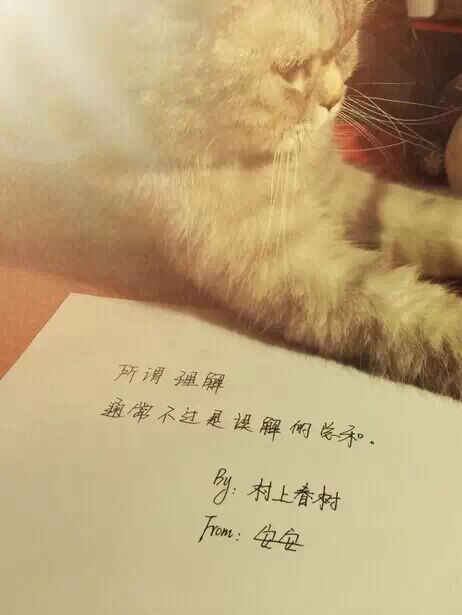 所谓理解
通常不过是误解的总和。
By: 村上春树
From: 安安